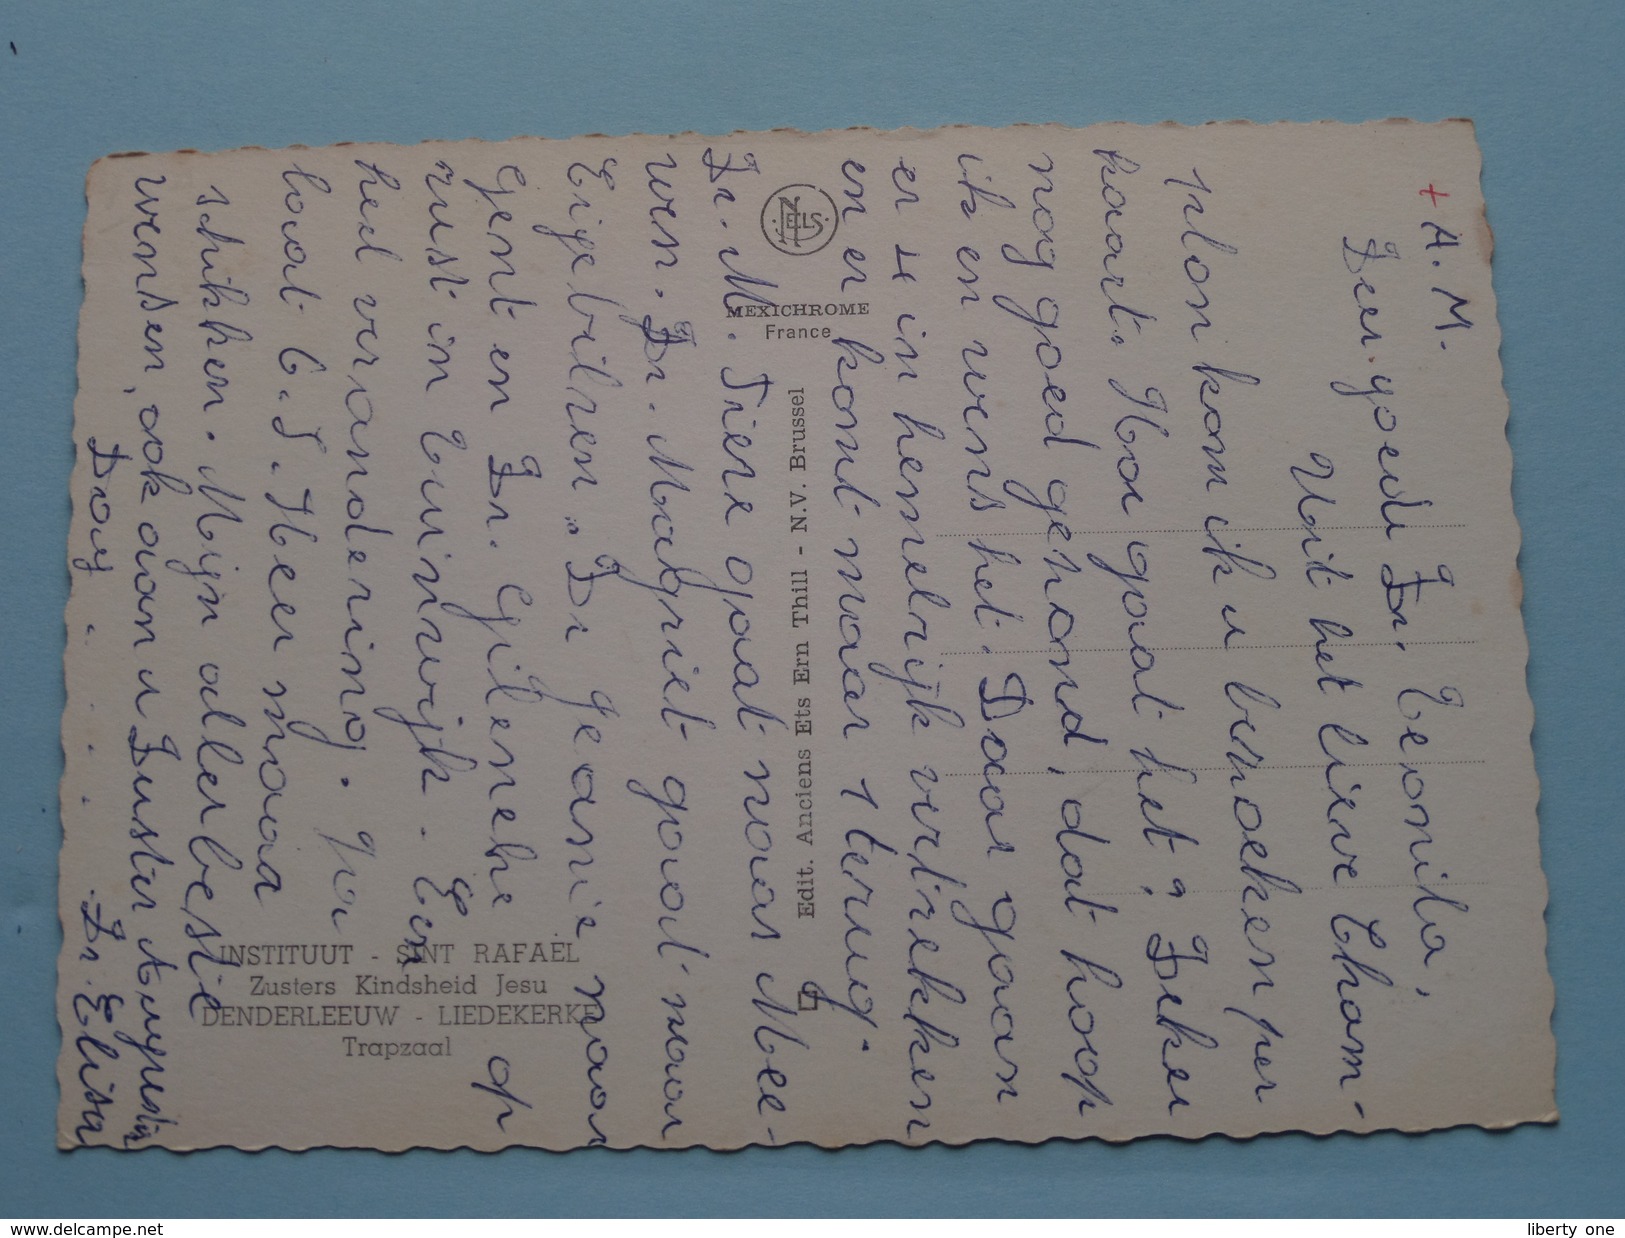 + A. M.
Zeer goede Zr. Leonila,
Uit het lieve Cham-
plon kom ik u bezoeken per
kaart. Hoe gaat het? Zeker
nog goed gezond, dat hoop
ik en wens het. Daar gaan
er 4 in hemelrijk vertrekken
en er komt maar 1 terug.
Zr. M. Fiere gaat naar Mee-
wen. Zr. Magriet gaat naar
Eigebilzen. Zr Jeanne naar
Gent en Zr. Gileneke op
rust in Luinwijk. Een
heel verandering. Ja
laat O. L. Heer maar
schikken. Mijn allerbeste
wensen, ook aan u Zuster Augustin
Daag . . . . . Zr. Elisa
NELS
MEXICHROME
France
Edit. Anciens Ets Ern Thill - N.V. Brussel
INSTITUUT - SINT RAFAËL
Zusters Kindsheid Jesu
DENDERLEEUW - LIEDEKERKE
Trapzaal
www.delcampe.net
liberty one